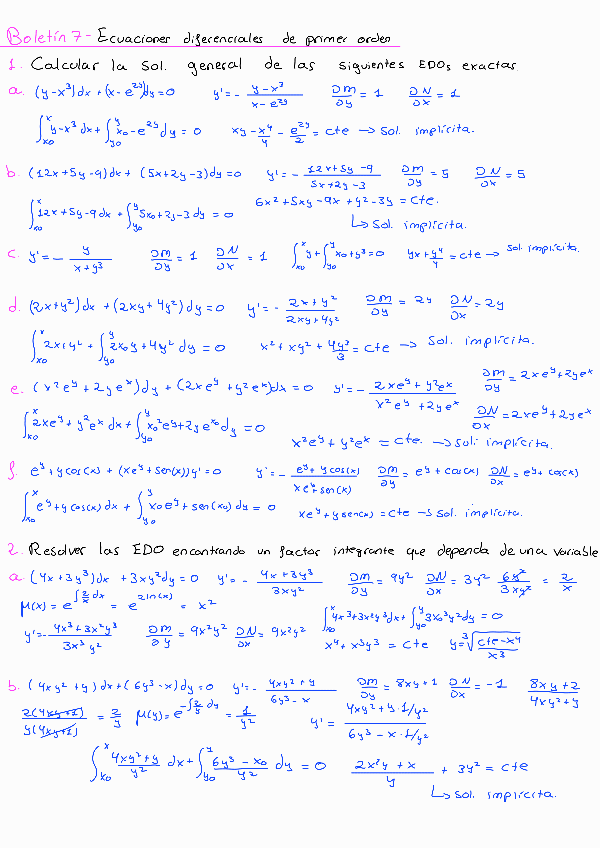 Boletín 7 - Ecuaciones diferenciales de primer orden
1. Calcular la sol. general de las siguientes EDOs exactas
a. (y-x³)dx + (x-e^2y)dy = 0 y' = - (y-x³)/(x-e^2y) ∂M/∂y = 1 ∂N/∂x = 1
∫_x0^x y-x³ dx + ∫_y0^y x0-e^2y dy = 0 xy - x⁴/4 - e^2y/2 = cte → Sol. implícita.
b. (12x+5y-9)dx + (5x+2y-3)dy = 0 y' = - (12x+5y-9)/(5x+2y-3) ∂M/∂y = 5 ∂N/∂x = 5
∫_x0^x 12x+5y-9 dx + ∫_y0^y 5x0+2y-3 dy = 0 6x²+5xy-9x+y²-3y = cte.
↳ Sol. implícita.
c. y' = - y/(x+y³) ∂M/∂y = 1 ∂N/∂x = 1 ∫_x0^x y + ∫_y0^y x0+y³ = 0 yx + y⁴/4 = cte → Sol. implícita.
d. (2x+y²)dx + (2xy+4y²)dy = 0 y' = - (2x+y²)/(2xy+4y²) ∂M/∂y = 2y ∂N/∂x = 2y
∫_x0^x 2x+y² + ∫_y0^y 2x0y+4y² dy = 0 x²+xy²+4y³/3 = cte → Sol. implícita.
e. (x²e^y+2ye^x)dy + (2xe^y+y²e^x)dx = 0 y' = - (2xe^y+y²e^x)/(x²e^y+2ye^x) ∂M/∂y = 2xe^y+2ye^x
∫_x0^x 2xe^y+y²e^x dx + ∫_y0^y x0²e^y+2ye^x0 dy = 0 ∂N/∂x = 2xe^y+2ye^x
x²e^y+y²e^x = cte. → Sol. implícita.
f. e^y+y cos(x) + (xe^y+sen(x))y' = 0 y' = - (e^y+y cos(x))/(xe^y+sen(x)) ∂M/∂y = e^y+cos(x) ∂N/∂x = e^y+cos(x)
∫_x0^x e^y+y cos(x) dx + ∫_y0^y x0e^y+sen(x0) dy = 0 xe^y+y sen(x) = cte → Sol. implícita.
2. Resolver las EDO encontrando un factor integrante que dependa de una variable
a. (4x+3y³)dx + 3xy²dy = 0 y' = - (4x+3y³)/(3xy²) ∂M/∂y = 9y² ∂N/∂x = 3y² 6y²/3xy² = 2/x
μ(x) = e^∫2/x dx = e^2ln(x) = x² ∫_x0^x 4x³+3x²y³dx + ∫_y0^y 3x0³y²dy = 0
y' = - (4x³+3x²y³)/(3x³y²) ∂M/∂y = 9x²y² ∂N/∂x = 9x²y² x⁴+x³y³ = cte y = ³√((cte-x⁴)/x³)
b. (4xy²+y)dx + (6y³-x)dy = 0 y' = - (4xy²+y)/(6y³-x) ∂M/∂y = 8xy+1 ∂N/∂x = -1 (8xy+2)/(4xy²+y)
2(4xy+1)/y(4xy+1) = 2/y μ(y) = e^-∫2/y dy = 1/y² y' = (4xy²+y·1/y²)/(6y³-x·1/y²)
∫_x0^x (4xy²+y)/y² dx + ∫_y0^y (6y³-x0)/y² dy = 0 (2x²y+x)/y + 3y² = cte
↳ Sol. implícita.